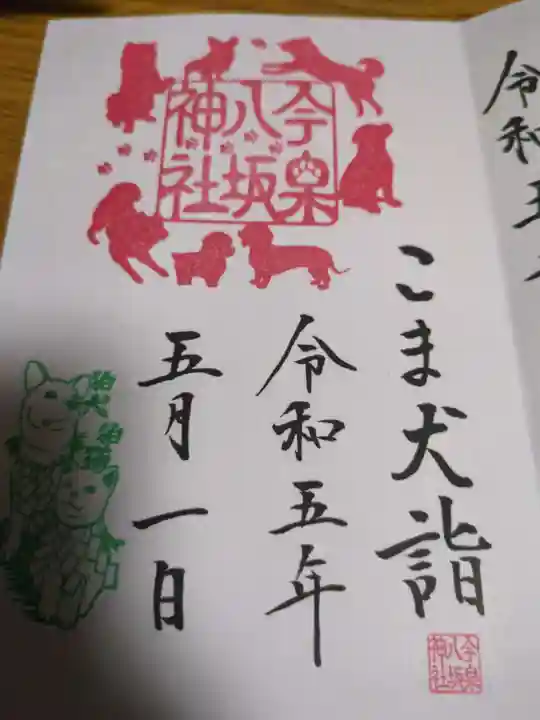 令和五
今泉
八坂
神社
こま犬詣
令和五年
五月一日
狛犬
狛猫
今泉
八坂
神社